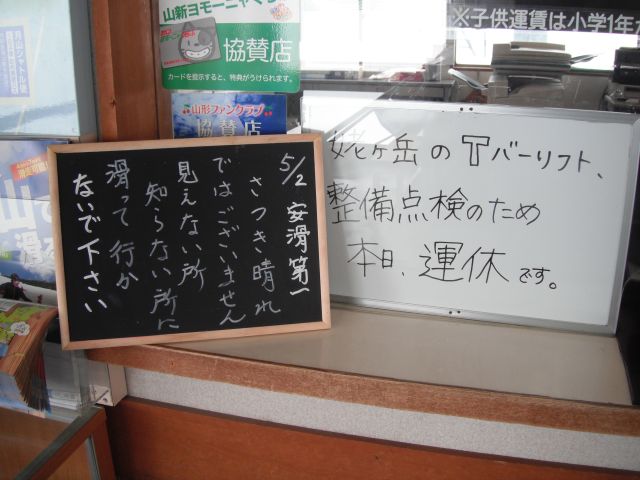 山新ヨモーニャくら
協賛店
カードを提示すると、特典がうけられます。
山形ファンクラブ
協賛店
※子供運賃は小学1年
5/2 安滑第一
さつき晴れ
ではございません
見えない所
知らない所に
滑って行か
ないで下さい
姥ヶ岳のTバーリフト、
整備点検のため
本日、運休です。
月山シャトル便